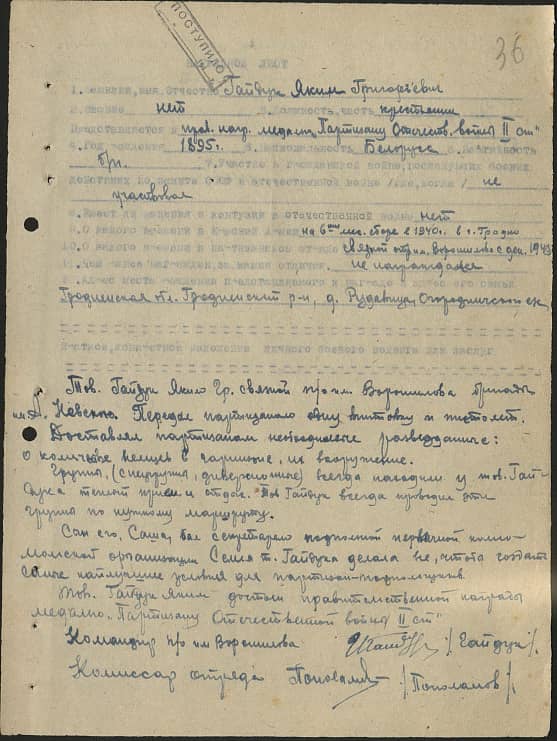 ПОСТУПИЛО
36
НАГРАДНОЙ ЛИСТ
1. Фамилия, имя, Отчество Гайдук Яким Григорьевич
2. Звание нет 3. Должность, часть крестьянин
Представляется к прав. нагр. медали „Партизану Отечеств. войны II ст"
4. Год рождения 1895г. 5. Национальность Белорус 6. Партийность
б/п. 7. Участие в гражданской войне, последующих боевых
действиях по защите СССР и отечественной войне /где, когда/ не
участвовал
8. Имеет ли ранения и контузии в отечественной войне нет
9. С какого времени в Красной Армии на 6ти мес. сборе в 1940г. в г. Гродно
10. С какого времени в партизанском отряде связной отр. им. Ворошилова с дек. 1943
11. Чем ранее награжден, за какие отличия не награждался
Гродненская обл. Гродненский р-н, д. Рудавица, Огородничский с/с
Краткое, конкретное изложение личного боевого подвига или заслуг
Тов. Гайдук Яким Гр. связной п/о им. Ворошилова бригады
им. А. Невского. Передал партизанам одну винтовку и пистолет.
Доставлял партизанам необходимые разведданные:
о количестве немцев в гарнизоне, их вооружение.
Группы, (спецгруппы, диверсионные) всегда находили у тов. Гай-
дука теплый прием и отдых. Тов Гайдук всегда проводил эти
группы по нужному маршруту.
Сын его, Саша, был секретарем подпольной первичной комсо-
мольской организации Семья т. Гайдука делала все, чтоб создать
самые наилучшие условия для партизан-подпольщиков.
Тов. Гайдук Яким достоин правительственной награды
медалью „Партизану Отечественной войны II ст"
Командир п/о им Ворошилова /Гайдук/.
Комиссар отряда Пополамов /Пополамов/.